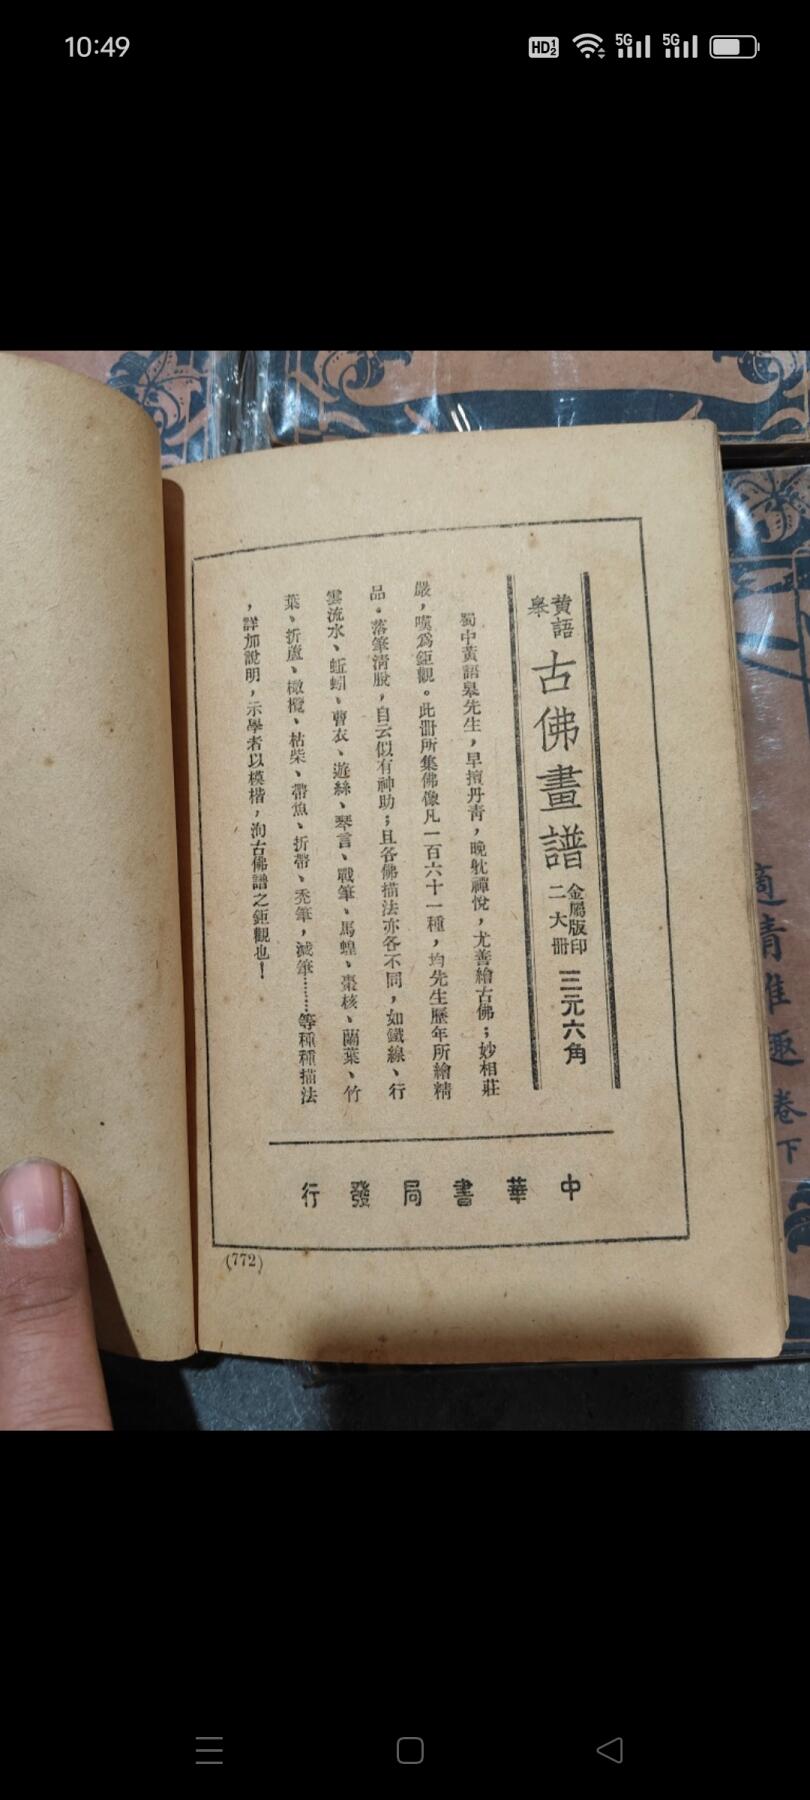 10:49
HD 1 2
5G
5G
黃語
皋
古佛畫譜
金屬版印
二大冊
三元六角
蜀中黃語皋先生，早擅丹青，晚躭禪悅，尤善繪古佛；妙相莊
嚴，嘆爲鉅觀。此冊所集佛像凡一百六十一種，均先生歷年所繪精
品。落筆清脫，自云似有神助；且各佛描法亦各不同，如鐵線、行
雲流水、蚯蚓、曹衣、遊絲、琴言、戰筆、馬蝗、棗核、蘭葉、竹
葉、折蘆、橄欖、枯柴、帶魚、折帶、禿筆，減筆………等種種描法
，詳加說明，示學者以模楷，洵古佛譜之鉅觀也！
中華書局發行
(772)
適情雅趣卷下